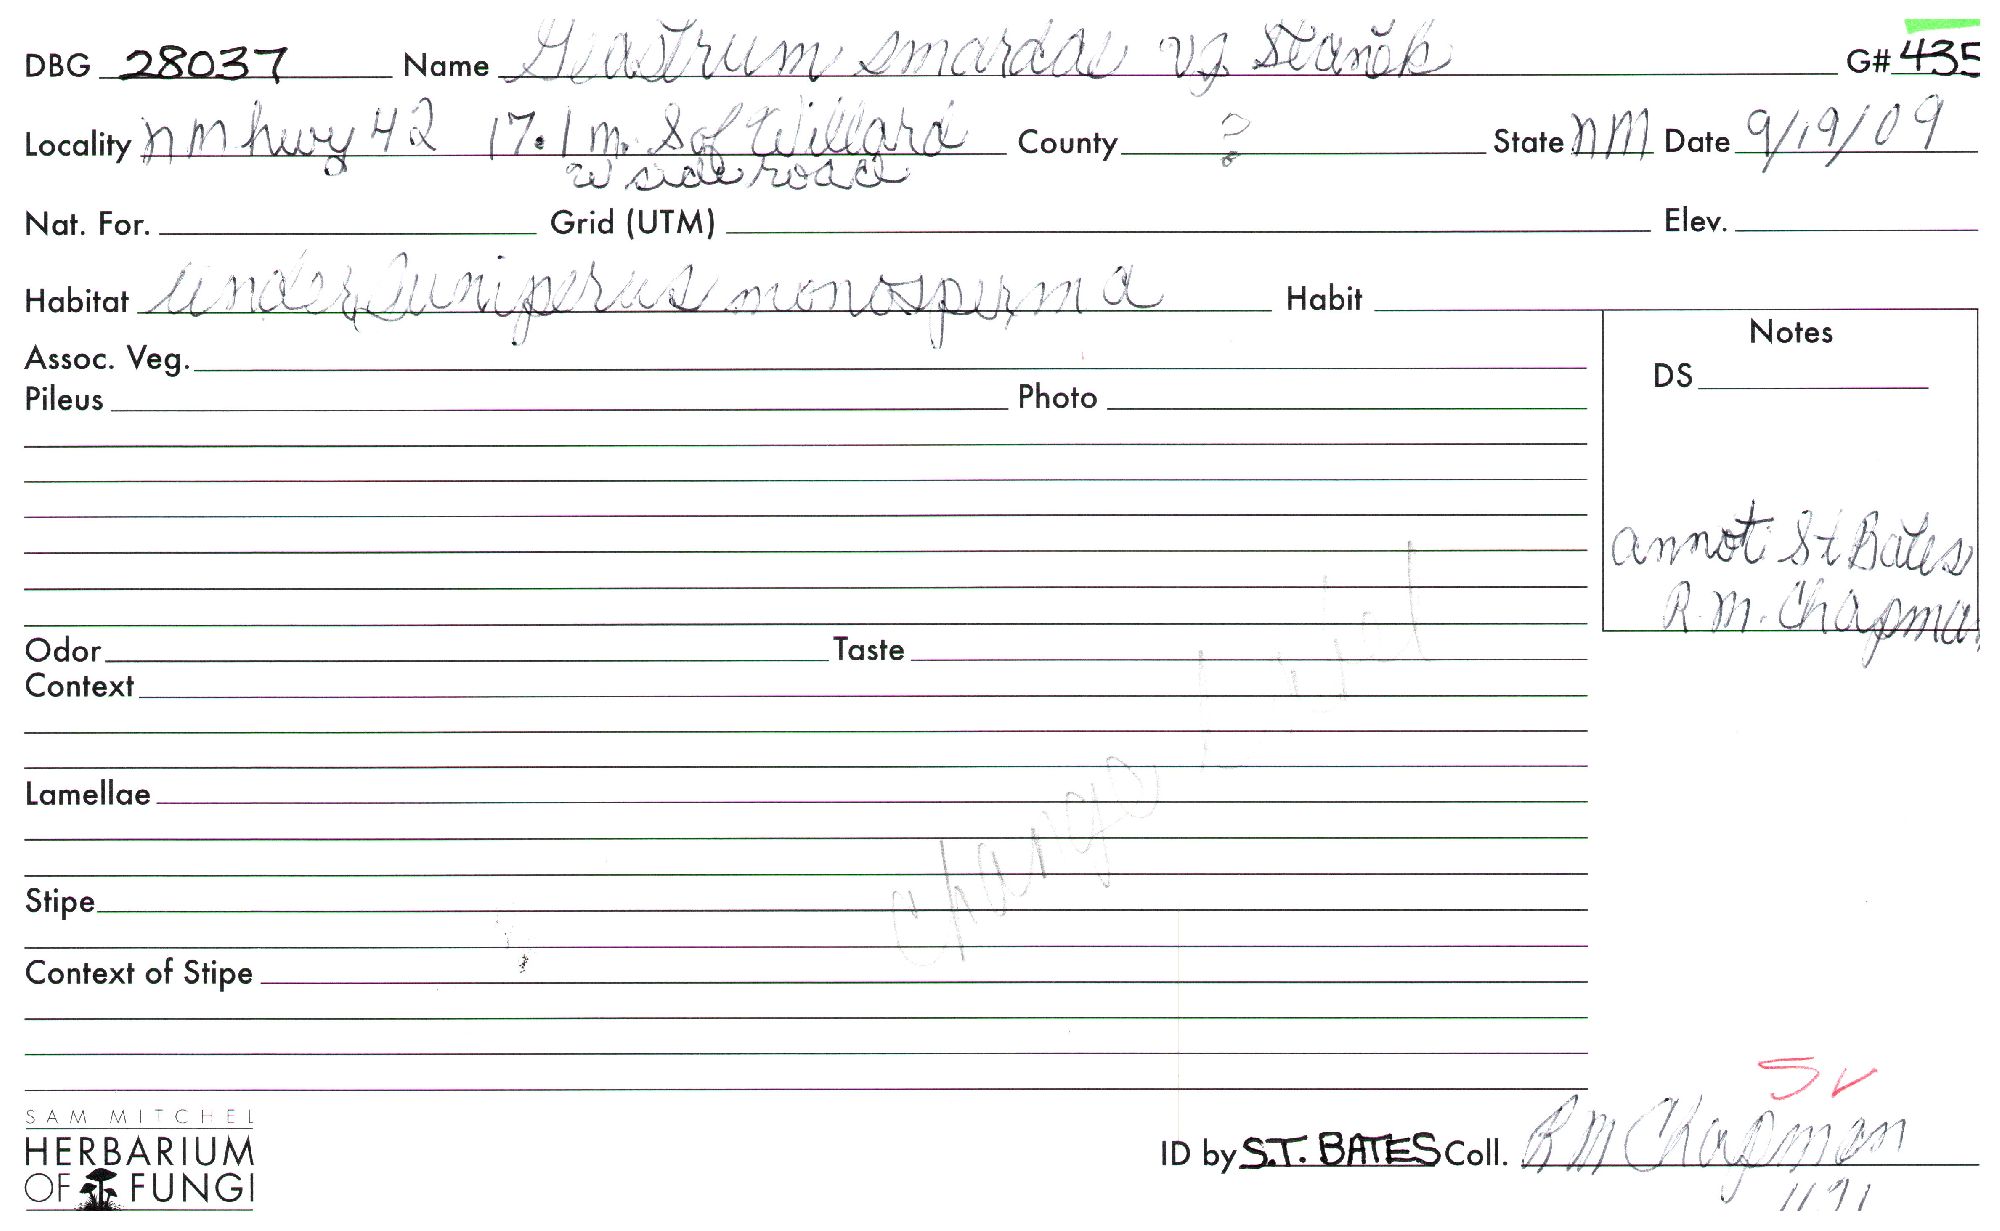 DBG 28037 Name Geastrum smardae vj. Staněk G# 435
Locality nm hwy 42 17.1 m. S of Willard County ? State NM Date 9/19/09
w side road
Nat. For. Grid (UTM) Elev.
Habitat under Juniperus monosperma Habit
Notes
Assoc. Veg.
DS
Pileus Photo
annot St Bates
R.M. Chapman
Odor Taste
Context
Lamellae
Stipe
Context of Stipe
SAM MITCHEL
HERBARIUM
OF FUNGI
ID by S.T. BATES Coll. RM Chapman